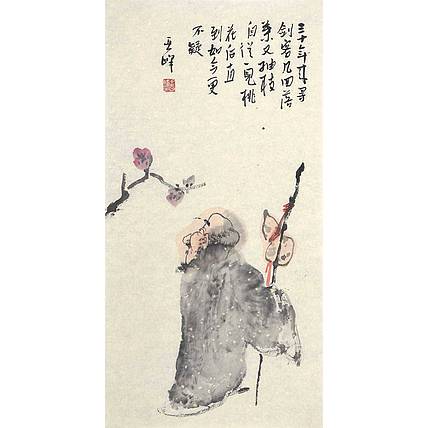 三十年来寻
剑客几回落
葉又抽枝
自從一見桃
花后直
到如今更
不疑